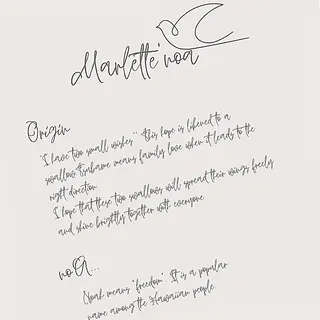 Marlette' noa
Origin
"I have two small wishes" this hope is likened to a
swallow. Tsubame means family love when it leads to the
right direction
I hope that these two swallows will spread their wings freely
and shine brightly together with everyone
noa...
Noah means "freedom". It is a popular
name among the Hawaiian people.